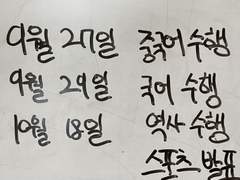 9월 27일 중국어 수행
9월 29일 국어 수행
10월 18일 역사 수행
스포츠 발표